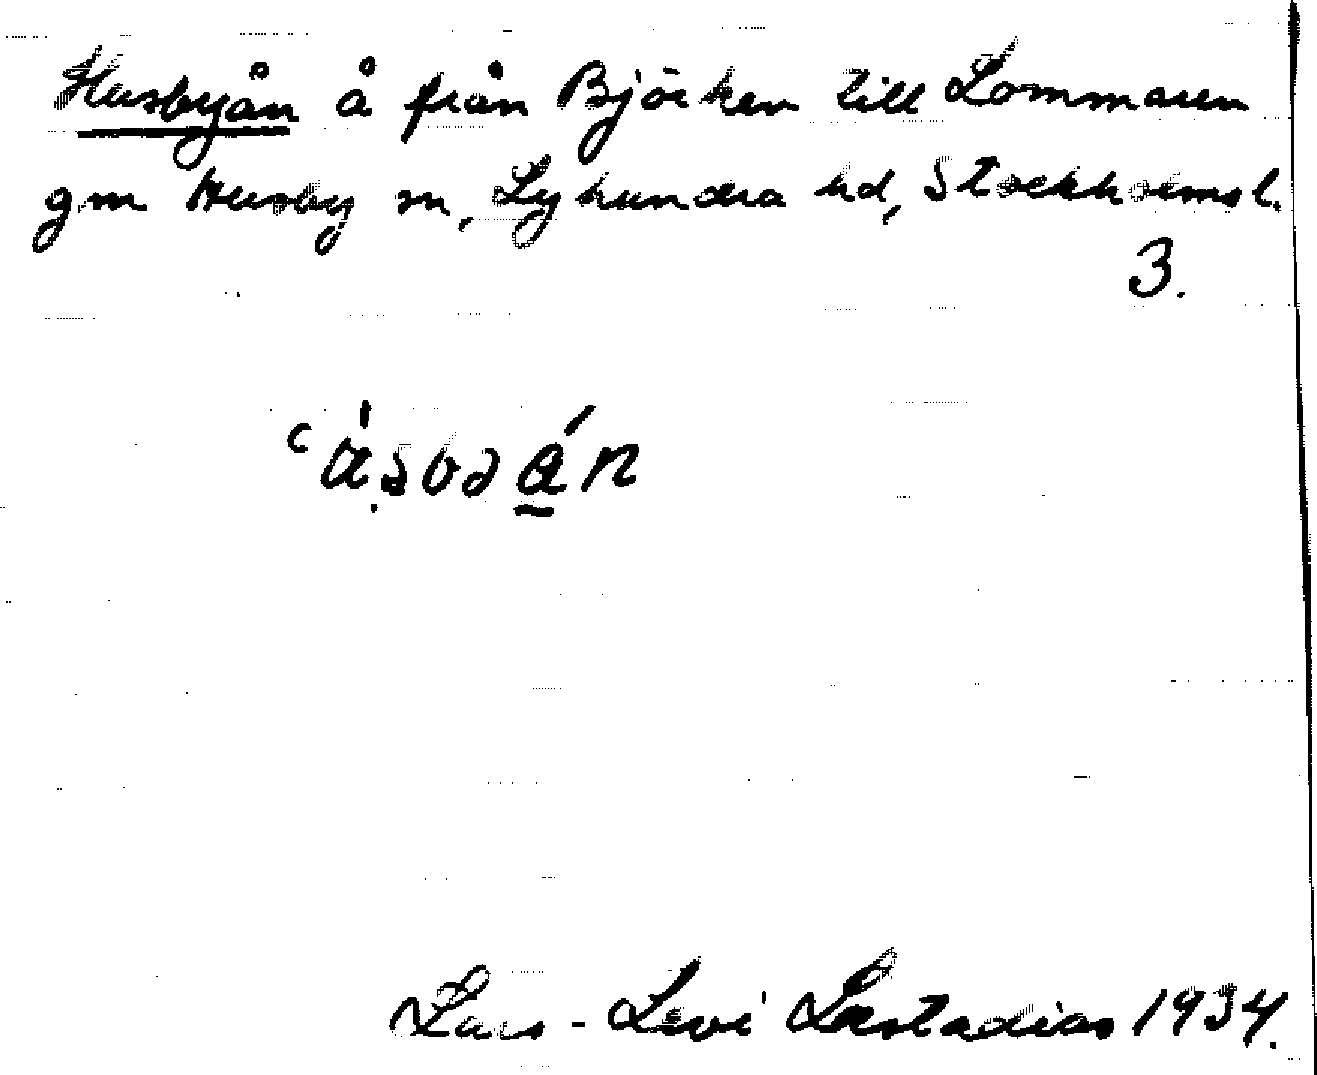 Husbyån å från Björken till Lommaren
gm Husby sn, Lyhundra hd, Stockholmsl.
3.
Lars-Levi Læstadius 1934.